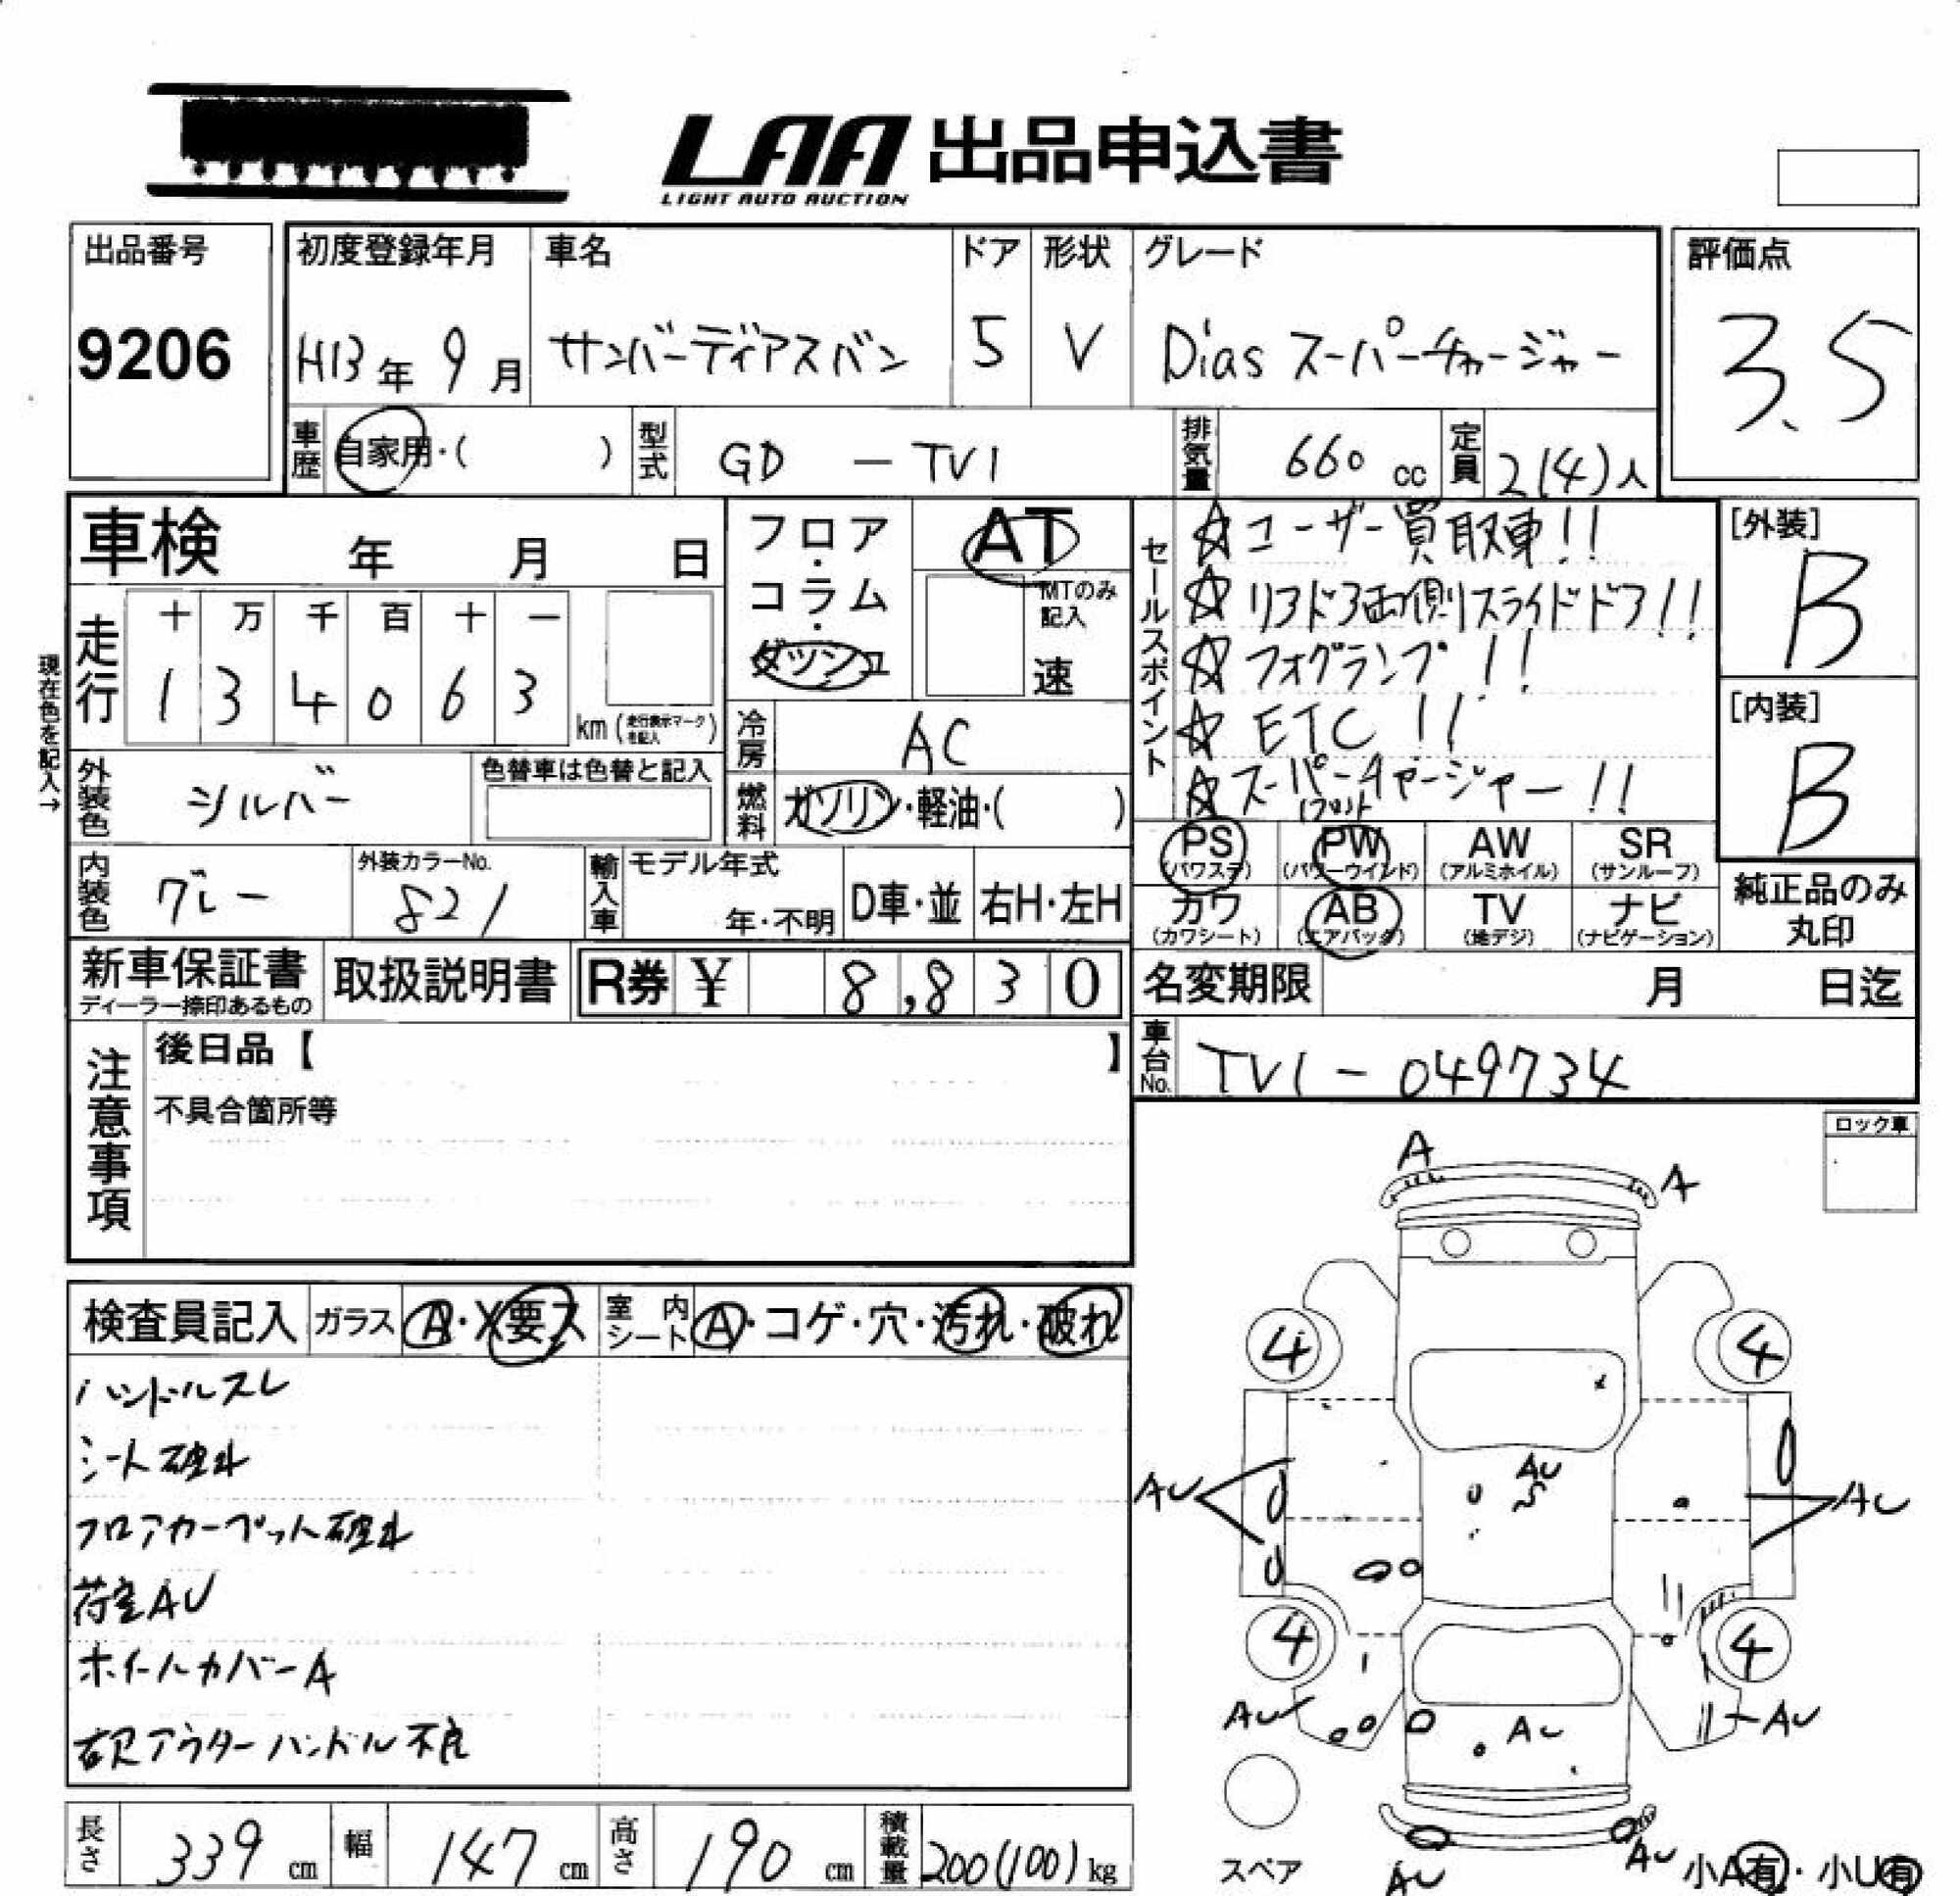 LAA 出品申込書
LIGHT AUTO AUCTION
出品番号
9206
初度登録年月 車名 ドア 形状 グレード
H13年 9月 サンバーディアスバン 5 V Dias スーパーチャージャー
評価点
3.5
車歴 自家用・( ) 型式 GD - TV1 排気量 660 cc 定員 2(4)人
車検 年 月 日
フロア・コラム・ダッシュ
AT
MTのみ記入
速
セールスポイント
☆ユーザー買取車!!
☆リヤドア両側スライドドア!!
☆フォグランプ!!
☆ETC!!
☆スーパーチャージャー!!
[外装]
B
[内装]
B
現在色を記入→
走行
十 万 千 百 十 一
1 3 4 0 6 3
km(走行表示マークを記入)
冷房 AC
外装色 シルバー
色替車は色替と記入
燃料 ガソリン・軽油・( )
フロント
PS (パワステ) PW (パワーウインド) AW (アルミホイル) SR (サンルーフ)
カワ (カワシート) AB (エアバッグ) TV (地デジ) ナビ (ナビゲーション)
純正品のみ丸印
内装色 グレー
外装カラーNo. 821
輸入車 モデル年式 年・不明 D車・並 右H・左H
新車保証書
ディーラー捺印あるもの
取扱説明書
R券 ¥ 8,830
名変期限 月 日迄
車台No. TV1-049734
注意事項
後日品【 】
不具合箇所等
ロック車
検査員記入 ガラス A・X要ス 室内シート A・コゲ・穴・汚れ・破れ
ハンドルスレ
シート破れ
フロアカーペット破れ
荷室AU
ホイールカバーA
アウターハンドル不良
A
A
4
4
AU
AU
AU
4
4
AU
AU
AU
スペア
AU
AU
小A有・小U有
長さ 339 cm 幅 147 cm 高さ 190 cm 積載量 200(100) kg